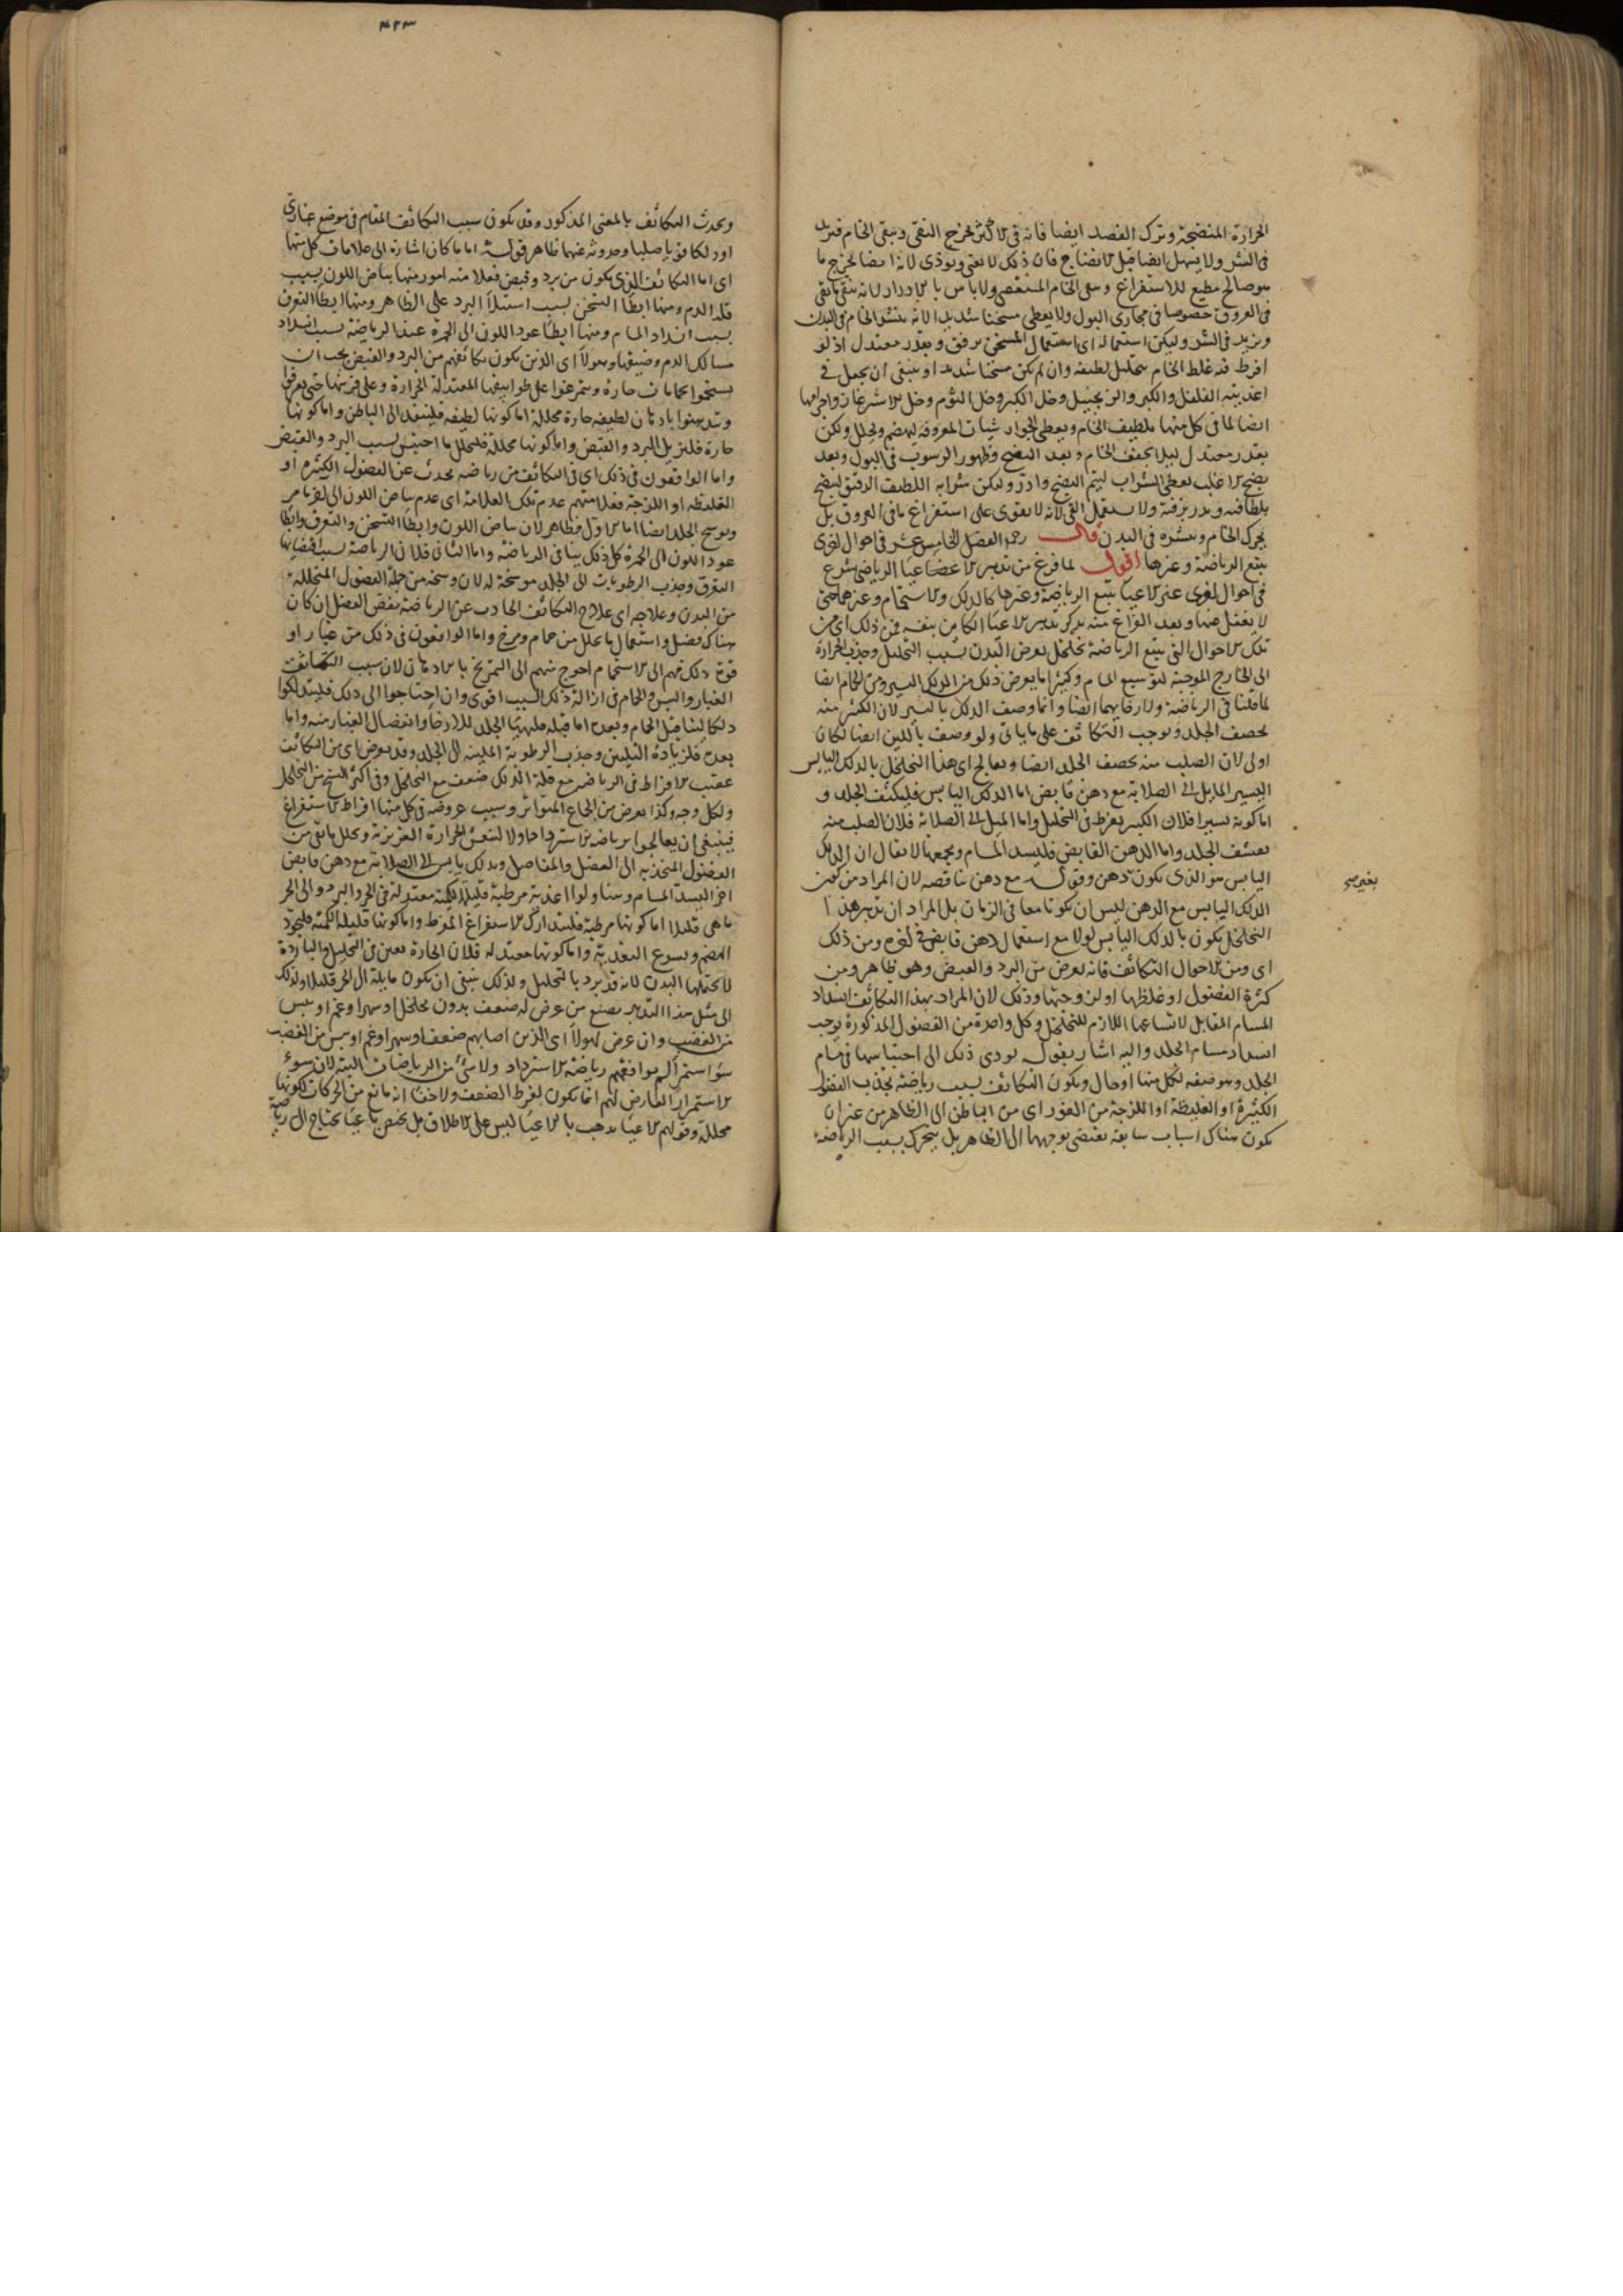 الحرارة المنضجة وترك الفصد ايضا فانه في الاكثر يخرج النقي ويبقى الخام فيزيد
في الشر ولا يسهل ايضا قبل الانضاج فان ذلك لا يغني ويؤذي لانه ايضا يخرج ما
هو صالح مطيع للاستفراغ ويبقى الخام المستعصي ولا باس بالادرار لانه ينقي ما بقي
في العروق خصوصا في مجاري البول ولا يعطى مسخنا شديدا لانه ينشر الخام في البدن
ويزيد في الشر وليكن استعماله اي استعمال المسخن برفق وبقدر معتدل اذ لو
افرط فيه غلظ الخام بتحليل لطيفه وان لم يكن مسخنا شديدا وينبغي ان يجعل في
اغذيته الفلفل والكبر والزنجبيل وخل الكبر وخل الثوم وخل الاشترغاز واجرامها
ايضا لما في كل منها تلطيف الخام ويعطى الجوارشنات المعروفة ليهضم ويحلل وليكن
بقدر معتدل ليلا يجفف الخام وبعد النضج وظهور الرسوب في البول وبعد
نضج الاغلب يعطى الشراب ليتم النضج وادر وليكن شرابه اللطيف الرقيق لينضج
بلطافته ويدر برقته ولا يستعمل القي لانه لا يقوى على استفراغ ما في العروق بل
يحرك الخام وينشره في البدن قال رحمه الفصل الخامس عشر في احوال اخرى
يتبع الرياضة وغيرها اقول لما فرغ من تدبير الاعضا عيا الرياضي شرع
في احوال اخرى غير الاعيا يتبع الرياضة وغيرها كالدلك والاستحمام وغيرها حتى
لا يغفل عنها وبعد الفراغ منه يذكر تدبير الاعيا الكاين بنفسه فمن ذلك اي من
تلك الاحوال التي يتبع الرياضة تخلخل يعرض البدن بسبب التحليل وجذب الحرارة
الى الخارج الموجبة لتوسيع المسام وكثيرا ما يعرض ذلك من الدلك اليسير ومن الحمام ايضا
لما قلنا في الرياضة ولارخايهما ايضا وانما وصف الدلك باليسير لان الكثير منه
يحصف الجلد ويوجب التكاثف على ما ياتي ولو وصف باللين ايضا لكان
اولى لان الصلب منه يحصف الجلد ايضا ويعالج اي هذا التخلخل بالدلك اليابس
اليسير المايل الى الصلابة مع دهن قابض اما الدلك اليابس فليكثف الجلد و
اما كونه يسيرا فلان الكثير يفرط في التحليل واما الميل الى الصلابة فلان الصلب منه
يحصف الجلد واما الدهن القابض فليسد المسام ويجمعها لا يقال ان الدلك
اليابس هو الذي يكون دهن وقوله مع دهن يناقضه لان المراد من كون
بغير صح
الدلك اليابس مع الدهن ليس ان يكونا معا في الزمان بل المراد ان تدبير هذا
التخلخل يكون بالدلك اليابس اولا مع استعمال دهن قابض في اخره ومن ذلك
اي ومن الاحوال التكاثف فانه يعرض من البرد والقبض وهو ظاهر ومن
كثرة الفضول او غلظها او لزوجتها وذلك لان المراد بهذا التكاثف انسداد
المسام المقابل لاتساعها اللازم للتخلخل وكل واحدة من الفضول المذكورة يوجب
انسداد مسام الجلد واليه اشار بقوله يودي ذلك الى احتباسها في مسام
الجلد وتوصيفه لكل منها اوحال ويكون التكاثف بسبب رياضة يجذب الفضول
الكثيرة او الغليظة او اللزجة من الغور اي من الباطن الى الظاهر من غير ان
يكون هناك اسباب سابقة يقتضي توجهها الى الظاهر بل يتحرك بسبب الرياضة
٤٢٣
ويحدث التكاثف بالمعنى المذكور وقد يكون سبب التكاثف المقام في موضع غباري
او دلكا قويا صلبا وحدوثه عنهما ظاهر قوله اما ما كان اشارة الى علامات كل منها
اي اما التكاثف الذي يكون من برد وقبض فعلامته امور منها بياض اللون بسبب
قلة الدم ومنها ابطا التسخن بسبب استيلا البرد على الظاهر ومنها ابطا التعرق
بسبب انسداد المسام ومنها ابطا عود اللون الى الحمرة عند الرياضة بسبب انسداد
مسالك الدم وضيقها وهولا اي الذين يكون تكاثفهم من البرد والقبض يجب ان
يستحموا بحمامات حارة ويتمرغوا على طوابيقها المعتدلة الحرارة وعلى فرشها حتى يعرقوا
ويتدهنوا بادهان لطيفة حارة محللة اما كونها لطيفة فلينفذ الى الباطن واما كونها
حارة فلتزيل البرد والقبض واما كونها محللة فلتحلل ما احتبس بسبب البرد والقبض
واما الواقعون في ذلك اي في التكاثف من رياضة يحدث عن الفضول الكثيرة او
الغليظة او اللزجة فعلامتهم عدم تلك العلامة اي عدم بياض اللون الى اخر ما مر
وتوسخ الجلد ايضا اما الاول فظاهر لان بياض اللون وابطا التسخن والتعرق وابطا
عود اللون الى الحمرة كل ذلك ينافي الرياضة واما الثاني فلان الرياضة بسبب اقتضايها
التعرق وجذب الرطوبات الى الجلد موسخة له لان وسخه من جملة الفضول المتحللة
من البدن وعلاجه اي علاج التكاثف الحادث عن الرياضة نفض الفضل ان كان
هناك فضل واستعمال ما يحلل من حمام ومروخ واما الواقعون في ذلك من غبار او
قوة دلك فهم الى الاستحمام احوج منهم الى التمريخ بالادهان لان سبب التكاثف
الغبار واليبس والحمام في ازالة ذلك السبب اقوى وان احتاجوا الى دلك فليتدلكوا
دلكا لينا قبل الحمام وبعده اما قبله فليهيا الجلد للارخا وانفصال الغبار منه واما
بعده فلزيادة التليين وجذب الرطوبة الملينة الى الجلد وقد يعرض اي من التكاثف
عقيب الافراط في الرياضة مع قلة الدلك ضعف مع التخلخل وفي اكثر النسخ من التخلخل
ولكل وجه وكذا يعرض من الجماع المتواتر وسبب عروضه في كل منها افراط الاستفراغ
فينبغي ان يعالجوا برياضة الاسترداد اولا لتنعش الحرارة الغريزية ويحلل ما بقي من
الفضول المنجذبة الى العضل والمفاصل وبدلك يابس الى الصلابة مع دهن قابض
اخرا ليسد المسام ويتناولوا اغذية مرطبة قليلة الكمية معتدلة في الحر والبرد والى الحر
ما هي قليلا اما كونها مرطبة فليتدارك الاستفراغ المفرط واما كونها قليلة الكمية فليجود
الهضم ويسرع التغذية واما كونها معتدلة فلان الحارة يعين في التحليل والباردة
لا يحتملها البدن لانه قد يبرد بالتحليل ولذلك ينبغي ان يكون مايلة الى الحر قليلا ولذلك
الى مثل هذا التدبير يصنع من عرض له ضعف بدون تخلخل او سهر او غم او يبس
من الغضب وان عرض لهولا اي الذين اصابهم ضعف او سهر او غم او يبس من الغضب
سو استمرا لم يوافقهم رياضة الاسترداد ولا شي من الرياضات البتة لان سوء
الاستمرا العارض لهم انما يكون لفرط الضعف ولا خفا انه مانع من الحركات لكونها
محللة وقولهم الاعيا يذهب بالاعيا ليس على الاطلاق بل يختص باعيا يحتاج الى رياضة